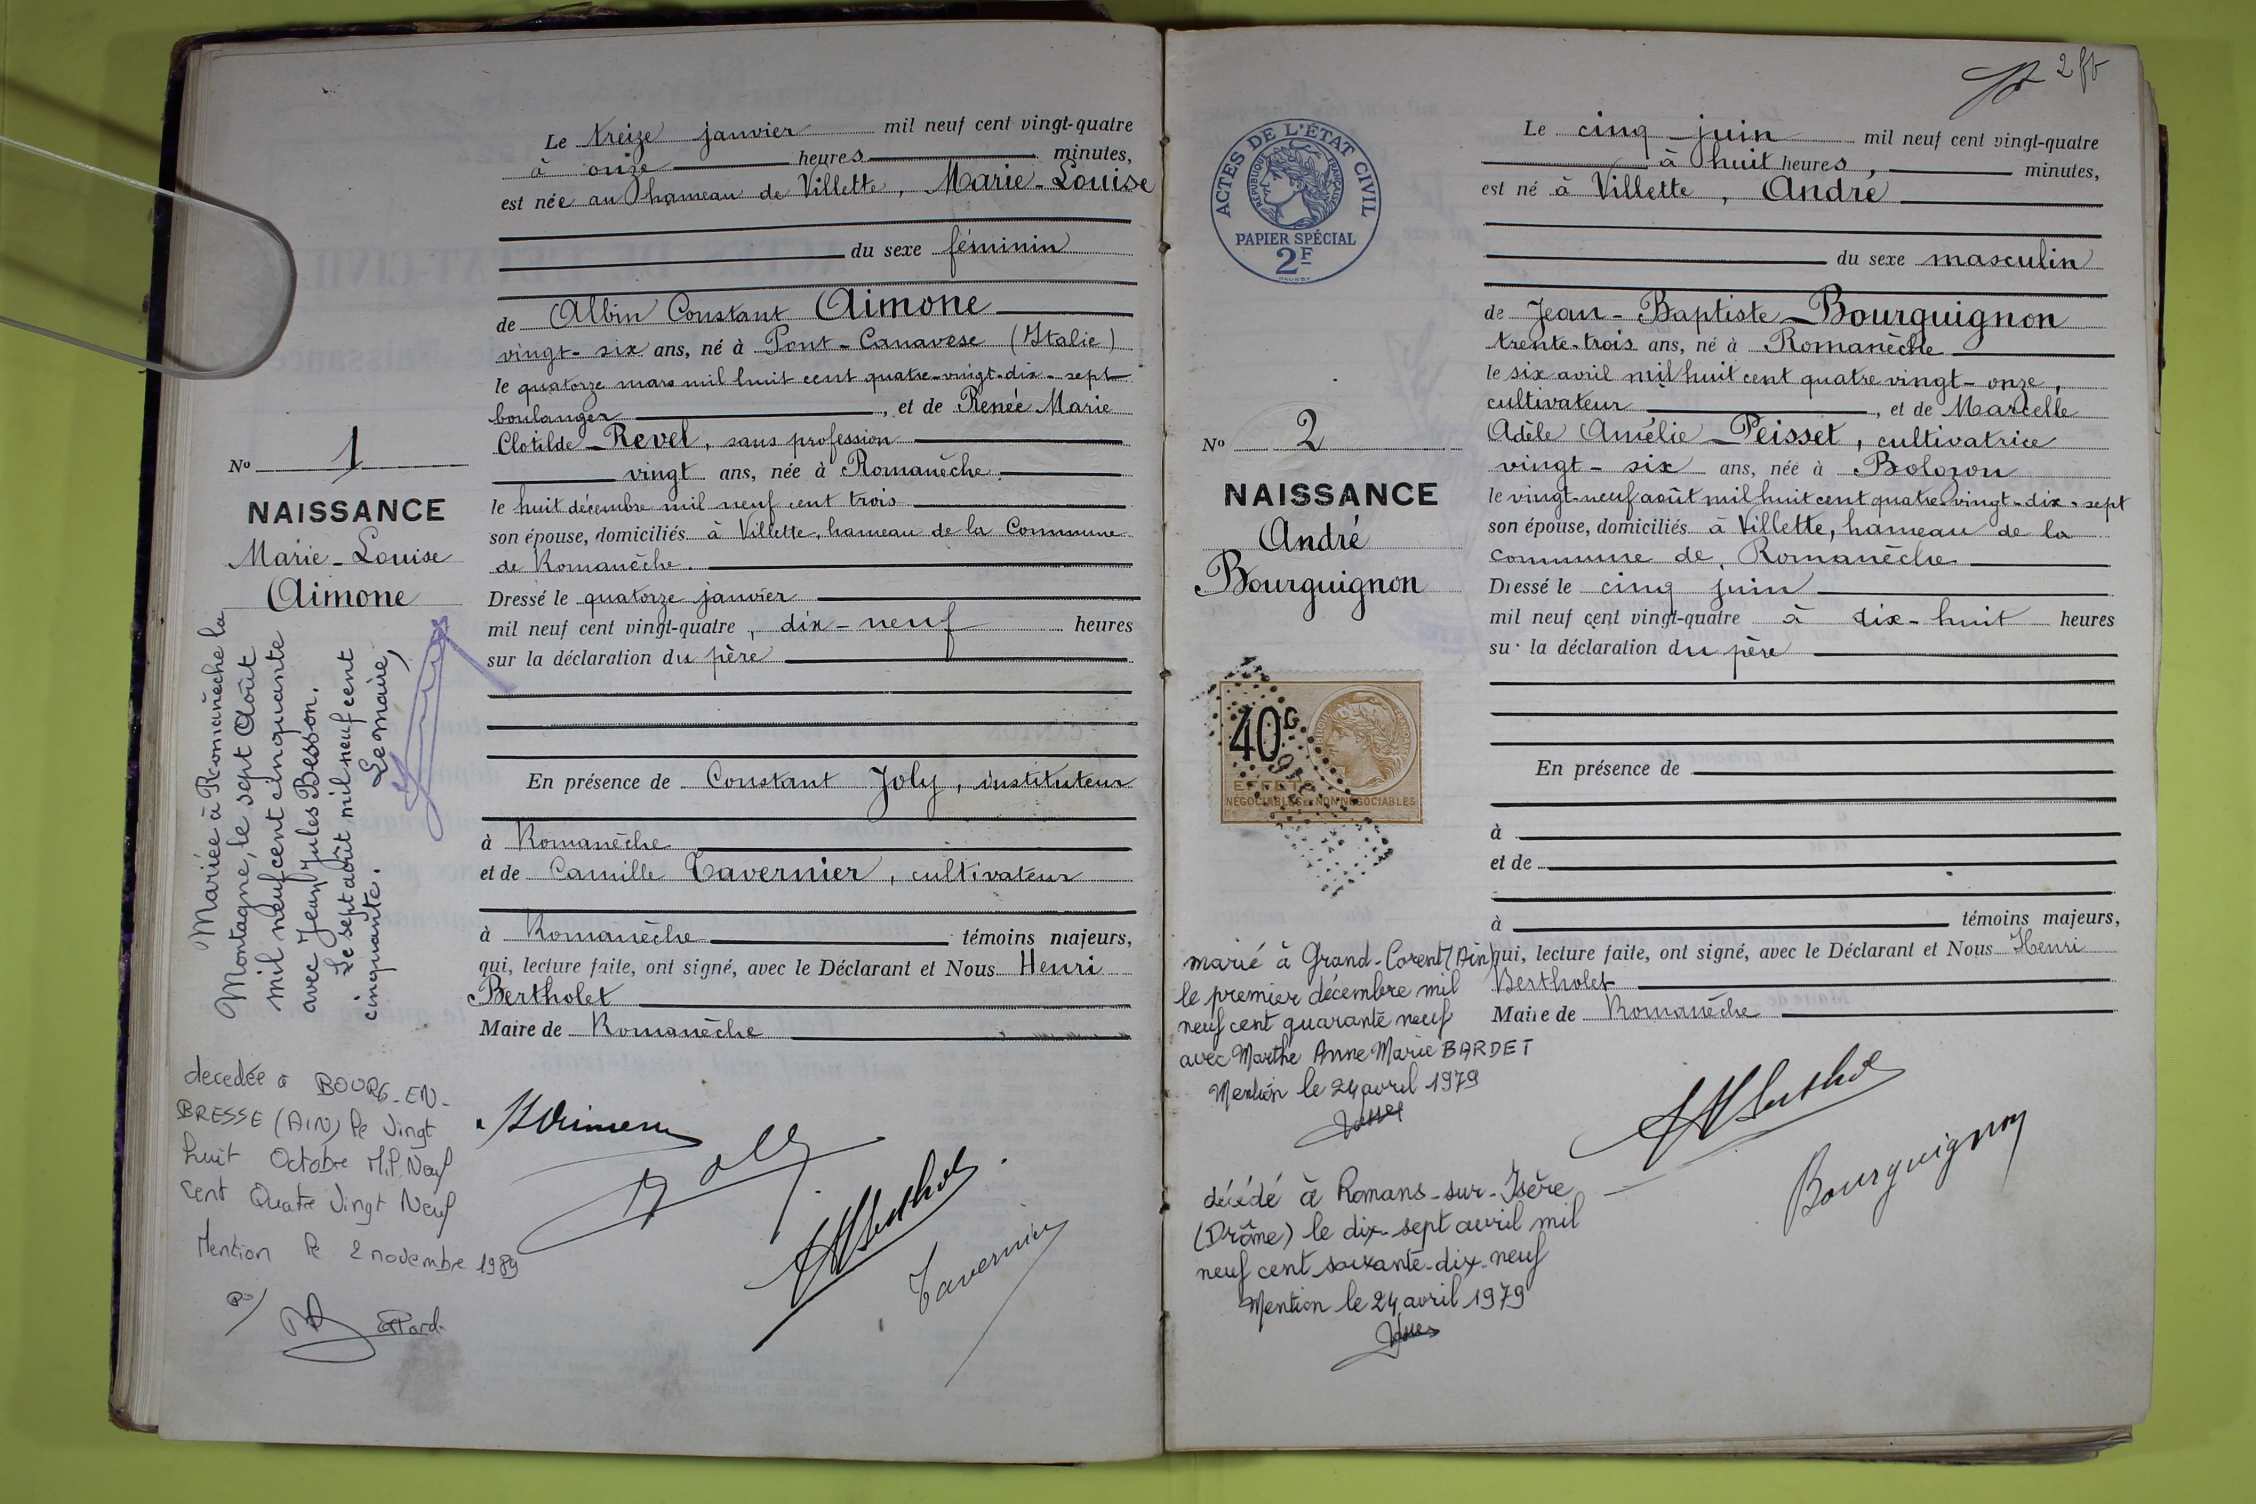 Le treize janvier mil neuf cent vingt-quatre
à onze heures minutes,
est née au hameau de Villette, Marie-Louise
du sexe féminin
de Albin Constant Aimone
vingt-six ans, né à Pont-Canavese (Italie)
le quatorze mars mil huit cent quatre-vingt-dix-sept
boulanger, et de Renée Marie
Clotilde Revel, sans profession
vingt ans, née à Romanèche
le huit décembre mil neuf cent trois
son épouse, domiciliés à Villette, hameau de la Commune
de Romanèche.
Dressé le quatorze janvier
mil neuf cent vingt-quatre, dix-neuf heures
sur la déclaration du père
En présence de Constant Joly, instituteur
à Romanèche
et de Camille Tavernier, cultivateur
à Romanèche témoins majeurs,
qui, lecture faite, ont signé, avec le Déclarant et Nous Henri
Bertholet
Maire de Romanèche
Tavernier
No 1
NAISSANCE
Marie-Louise
Aimone
Mariée à Romanèche la
Montagne, le sept Août
mil neuf cent cinquante
avec Jean Jules Besson.
Le sept août mil neuf cent
cinquante. Le maire,
decedée a BOURG-EN-
BRESSE (AIN) le Vingt
huit Octobre Mil Neuf
cent Quatre Vingt Neuf
Mention le 2 novembre 1989
2
ACTES DE L'ÉTAT CIVIL
RÉPUBLIQUE FRANÇAISE
PAPIER SPÉCIAL
2F
Le cinq juin mil neuf cent vingt-quatre
à huit heures, minutes,
est né à Villette, André
du sexe masculin
de Jean-Baptiste Bourguignon
trente-trois ans, né à Romanèche
le six avril mil huit cent quatre vingt-onze,
cultivateur, et de Marcelle
Adèle Amélie Peisset, cultivatrice
vingt-six ans, née à Bolozon
le vingt-neuf août mil huit cent quatre-vingt-dix-sept
son épouse, domiciliés à Villette, hameau de la
commune de Romanèche
Dressé le cinq juin
mil neuf cent vingt-quatre à dix-huit heures
sur la déclaration du père
En présence de
à
et de
à témoins majeurs,
qui, lecture faite, ont signé, avec le Déclarant et Nous Henri
Bertholet
Maire de Romanèche
Bourguignon
No 2
NAISSANCE
André
Bourguignon
40c
EFFETS
NÉGOCIABLES ET NON NÉGOCIABLES
marié à Grand-Corent (Ain)
le premier décembre mil
neuf cent quarante neuf
avec Marthe Anne Marie BARDET
Mention le 24 avril 1979
décédé à Romans-sur-Isère
(Drôme) le dix-sept avril mil
neuf cent soixante-dix-neuf
Mention le 24 avril 1979